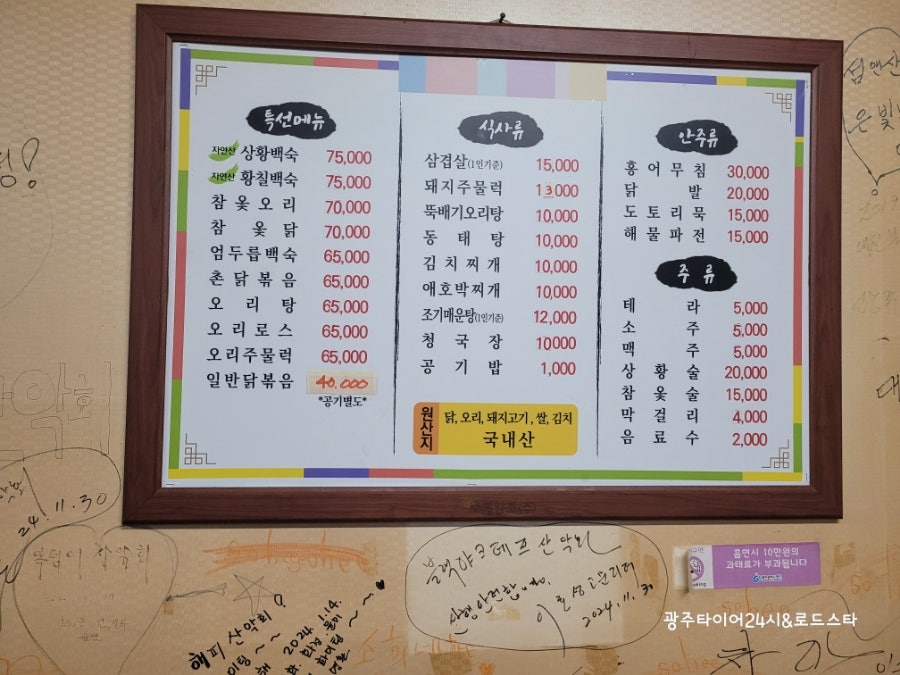 특선메뉴
자연산 상황백숙 75,000
자연산 황칠백숙 75,000
참옻오리 70,000
참옻닭 70,000
엄두릅백숙 65,000
촌닭볶음 65,000
오리탕 65,000
오리로스 65,000
오리주물럭 65,000
일반닭볶음 40.000
*공기별도*
식사류
삼겹살(1인기준) 15,000
돼지주물럭 13000
뚝배기오리탕 10,000
동태탕 10,000
김치찌개 10,000
애호박찌개 10,000
조기매운탕(1인기준) 12,000
청국장 10000
공기밥 1,000
원산지
닭, 오리, 돼지고기, 쌀, 김치
국내산
안주류
홍어무침 30,000
닭발 20,000
도토리묵 15,000
해물파전 15,000
주류
테라 5,000
소주 5,000
맥주 5,000
상황술 20,000
참옻술 15,000
막걸리 4,000
음료수 2,000
24.11.30
블랙야크테프산악회
산행안전한
2024.11.30
해피산악회
2024.
흡연시 10만원의
과태료가 부과됩니다
광주타이어24시&로드스타